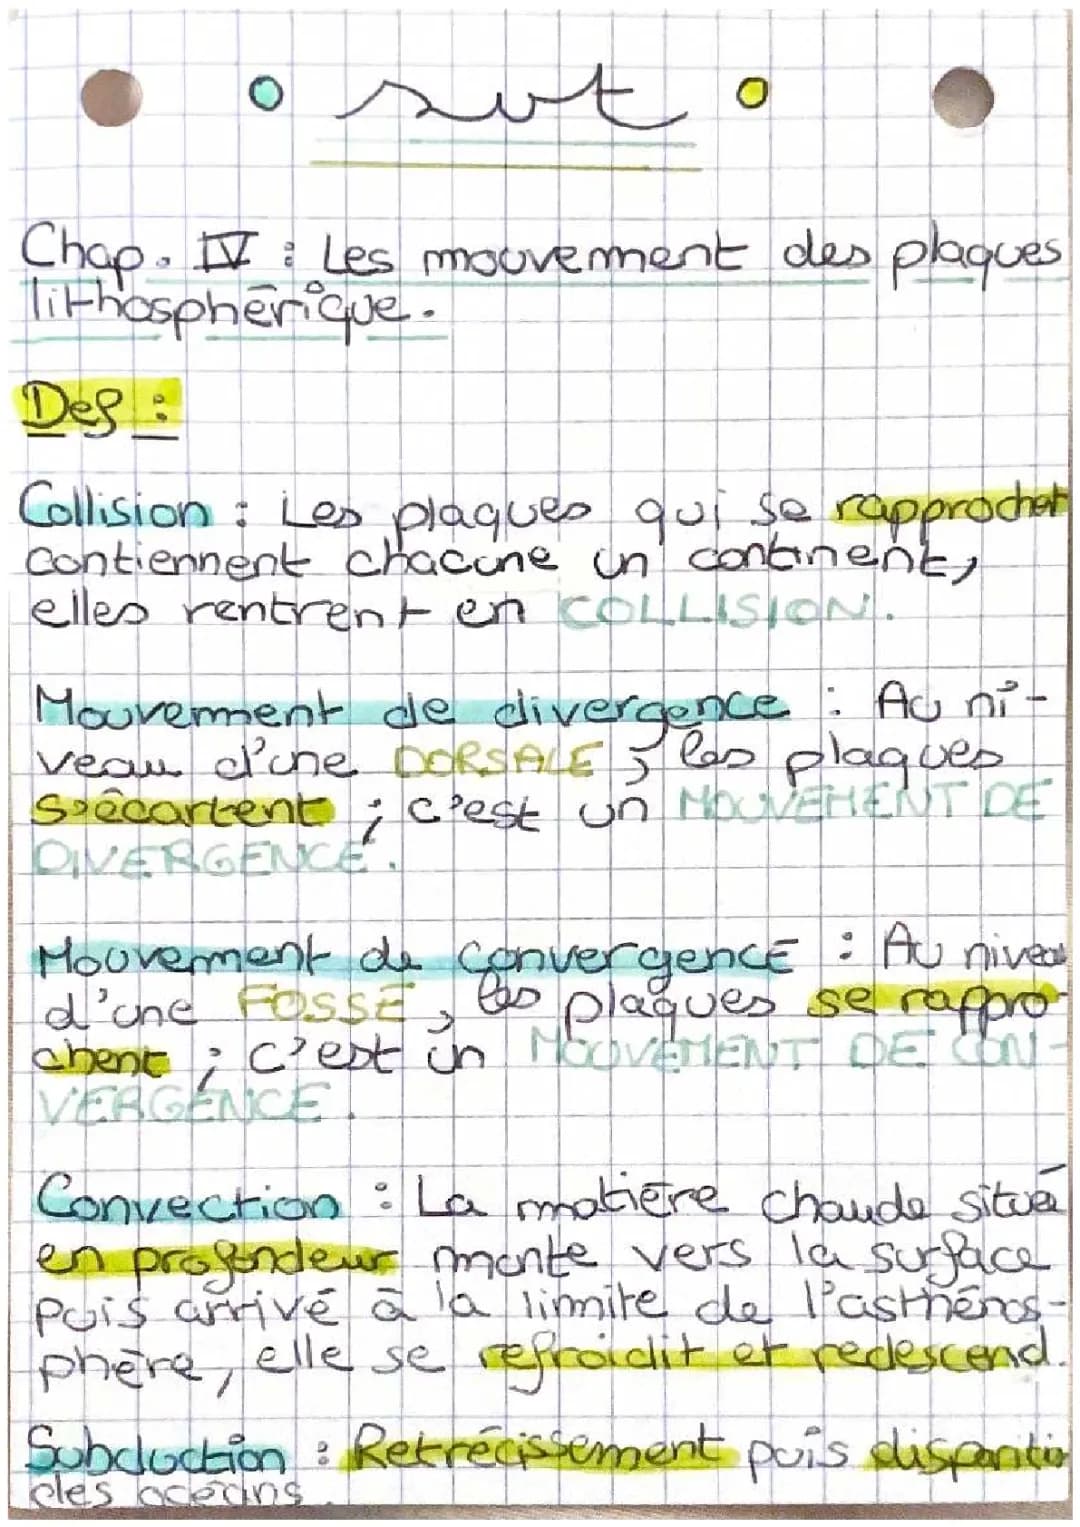 svt
Chap. IV : Les mouvement des plaques
lithosphérique.
Def :
Collision : Les plaques qui se rapprochet
contiennent chacune un continent,
elles rentrent en COLLISION.
Mouvement de divergence : Au ni-
veau d'une DORSALE, les plaques
s'écartent ; c'est un MOUVEMENT DE
DIVERGENCE.
Mouvement de convergencE : Au niveau
d'une FOSSE, les plaques se rappro-
chent ; c'est un MOUVEMENT DE CON-
VERGENCE.
Convection : La matière chaude situé
en profondeur monte vers la surface
puis arrivé à la limite de l'asthénos-
phère, elle se refroidit et redescend.
Subduction : Retrécissement puis disparitio
des océans.